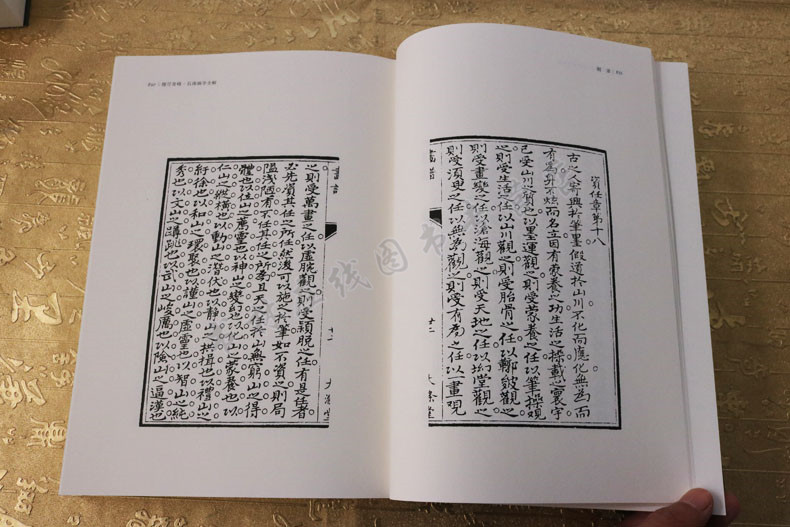 資任章第十八
古之人寄興於筆墨假道於山川不化而應化無為而
有為身不炫而名立因有蒙養之功生活之操載之寰宇
已受山川之質也以墨運觀之則受蒙養之任以筆操觀
之則受生活之任以山川觀之則受胎骨之任以鞹皴觀之
則受畫變之任以滄海觀之則受天地之任以坳堂觀之
則受須臾之任以無為觀之則受有為之任以一畫觀
畫譜 廿二 大滌堂
畫譜 大滌堂
之則受萬畫之任以虛腕觀之則受穎脫之任有是任者
必先資其任之所任然後可以施之於筆如不資之則局
隘淺陋有不任其任之所為且天之任於山無窮山之得
體也以位山之薦靈也以神山之變幻也以化山之蒙養也以
仁山之縱橫也以動山之潛伏也以靜山之拱揖也以禮山之
紆徐也以和山之環聚也以謹山之虛靈也以智山之純
秀也以文山之蹲跳也以武山之峻厲也以險山之逼漢也
线图书